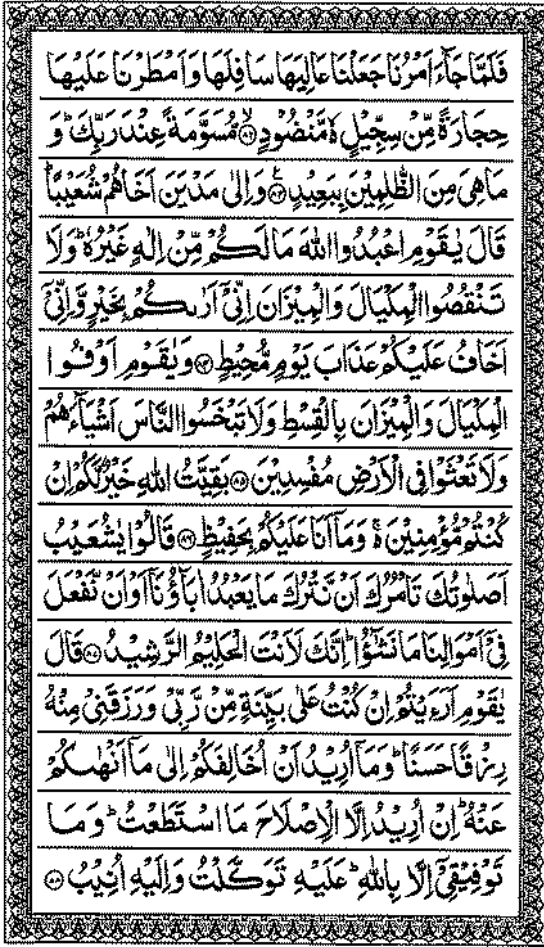 فَلَمَّا جَآءَ اَمۡرُنَا جَعَلۡنَا عَالِیَهَا سَافِلَهَا وَ اَمۡطَرۡنَا عَلَیۡهَا
حِجَارَةً مِّنۡ سِجِّیۡلٍ ۬ۙ مَّنۡضُوۡدٍ ﴿ۙ۸۲﴾ مُّسَوَّمَةً عِنۡدَ رَبِّكَ ؕ وَ
مَا هِیَ مِنَ الظّٰلِمِیۡنَ بِبَعِیۡدٍ ﴿۸۳﴾ وَ اِلٰی مَدۡیَنَ اَخَاهُمۡ شُعَیۡبًا ؕ
قَالَ یٰقَوۡمِ اعۡبُدُوا اللّٰهَ مَا لَكُمۡ مِّنۡ اِلٰهٍ غَیۡرُهٗ ؕ وَ لَا
تَنۡقُصُوا الۡمِكۡیَالَ وَ الۡمِیۡزَانَ اِنِّیۡۤ اَرٰىكُمۡ بِخَیۡرٍ وَّ اِنِّیۡۤ
اَخَافُ عَلَیۡكُمۡ عَذَابَ یَوۡمٍ مُّحِیۡطٍ ﴿۸۴﴾ وَ یٰقَوۡمِ اَوۡفُوا
الۡمِكۡیَالَ وَ الۡمِیۡزَانَ بِالۡقِسۡطِ وَ لَا تَبۡخَسُوا النَّاسَ اَشۡیَآءَهُمۡ
وَ لَا تَعۡثَوۡا فِی الۡاَرۡضِ مُفۡسِدِیۡنَ ﴿۸۵﴾ بَقِیَّتُ اللّٰهِ خَیۡرٌ لَّكُمۡ اِنۡ
كُنۡتُمۡ مُّؤۡمِنِیۡنَ ۬ۚ وَ مَاۤ اَنَا عَلَیۡكُمۡ بِحَفِیۡظٍ ﴿۸۶﴾ قَالُوۡا یٰشُعَیۡبُ
اَصَلٰوتُكَ تَاۡمُرُكَ اَنۡ نَّتۡرُكَ مَا یَعۡبُدُ اٰبَآؤُنَاۤ اَوۡ اَنۡ نَّفۡعَلَ
فِیۡۤ اَمۡوَالِنَا مَا نَشٰٓؤُا ؕ اِنَّكَ لَاَنۡتَ الۡحَلِیۡمُ الرَّشِیۡدُ ﴿۸۷﴾ قَالَ
یٰقَوۡمِ اَرَءَیۡتُمۡ اِنۡ كُنۡتُ عَلٰی بَیِّنَةٍ مِّنۡ رَّبِّیۡ وَ رَزَقَنِیۡ مِنۡهُ
رِزۡقًا حَسَنًا ؕ وَ مَاۤ اُرِیۡدُ اَنۡ اُخَالِفَكُمۡ اِلٰی مَاۤ اَنۡهٰىكُمۡ
عَنۡهُ ؕ اِنۡ اُرِیۡدُ اِلَّا الۡاِصۡلَاحَ مَا اسۡتَطَعۡتُ ؕ وَ مَا
تَوۡفِیۡقِیۡۤ اِلَّا بِاللّٰهِ ؕ عَلَیۡهِ تَوَكَّلۡتُ وَ اِلَیۡهِ اُنِیۡبُ ﴿۸۸﴾